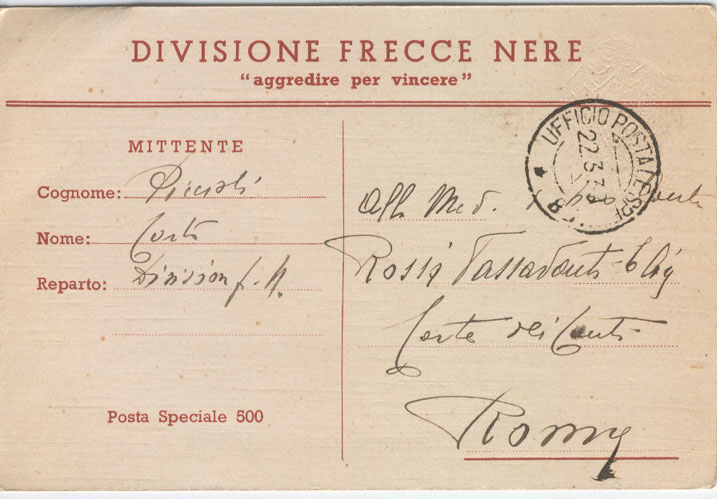 DIVISIONE FRECCE NERE
"aggredire per vincere"
MITTENTE
Cognome:
Nome:
Reparto: Division f. N.
Posta Speciale 500
UFFICIO POSTALE SPE
22.3.39
8
Alla Med.
Rossi Passavanti
Corte dei Conti
Roma